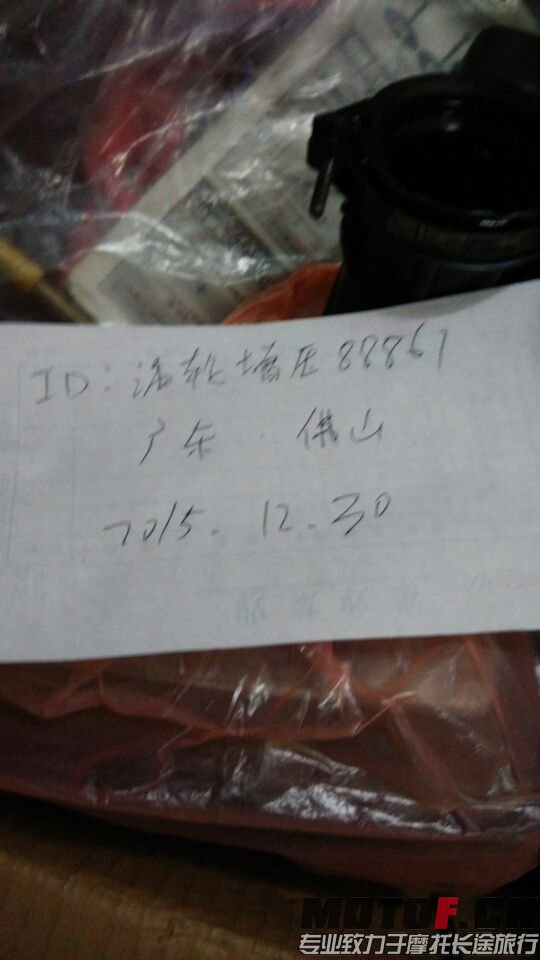 ID: 涡轮增压88861
广东 · 佛山
2015. 12. 30
MOTOF.CN
专业致力于摩托长途旅行